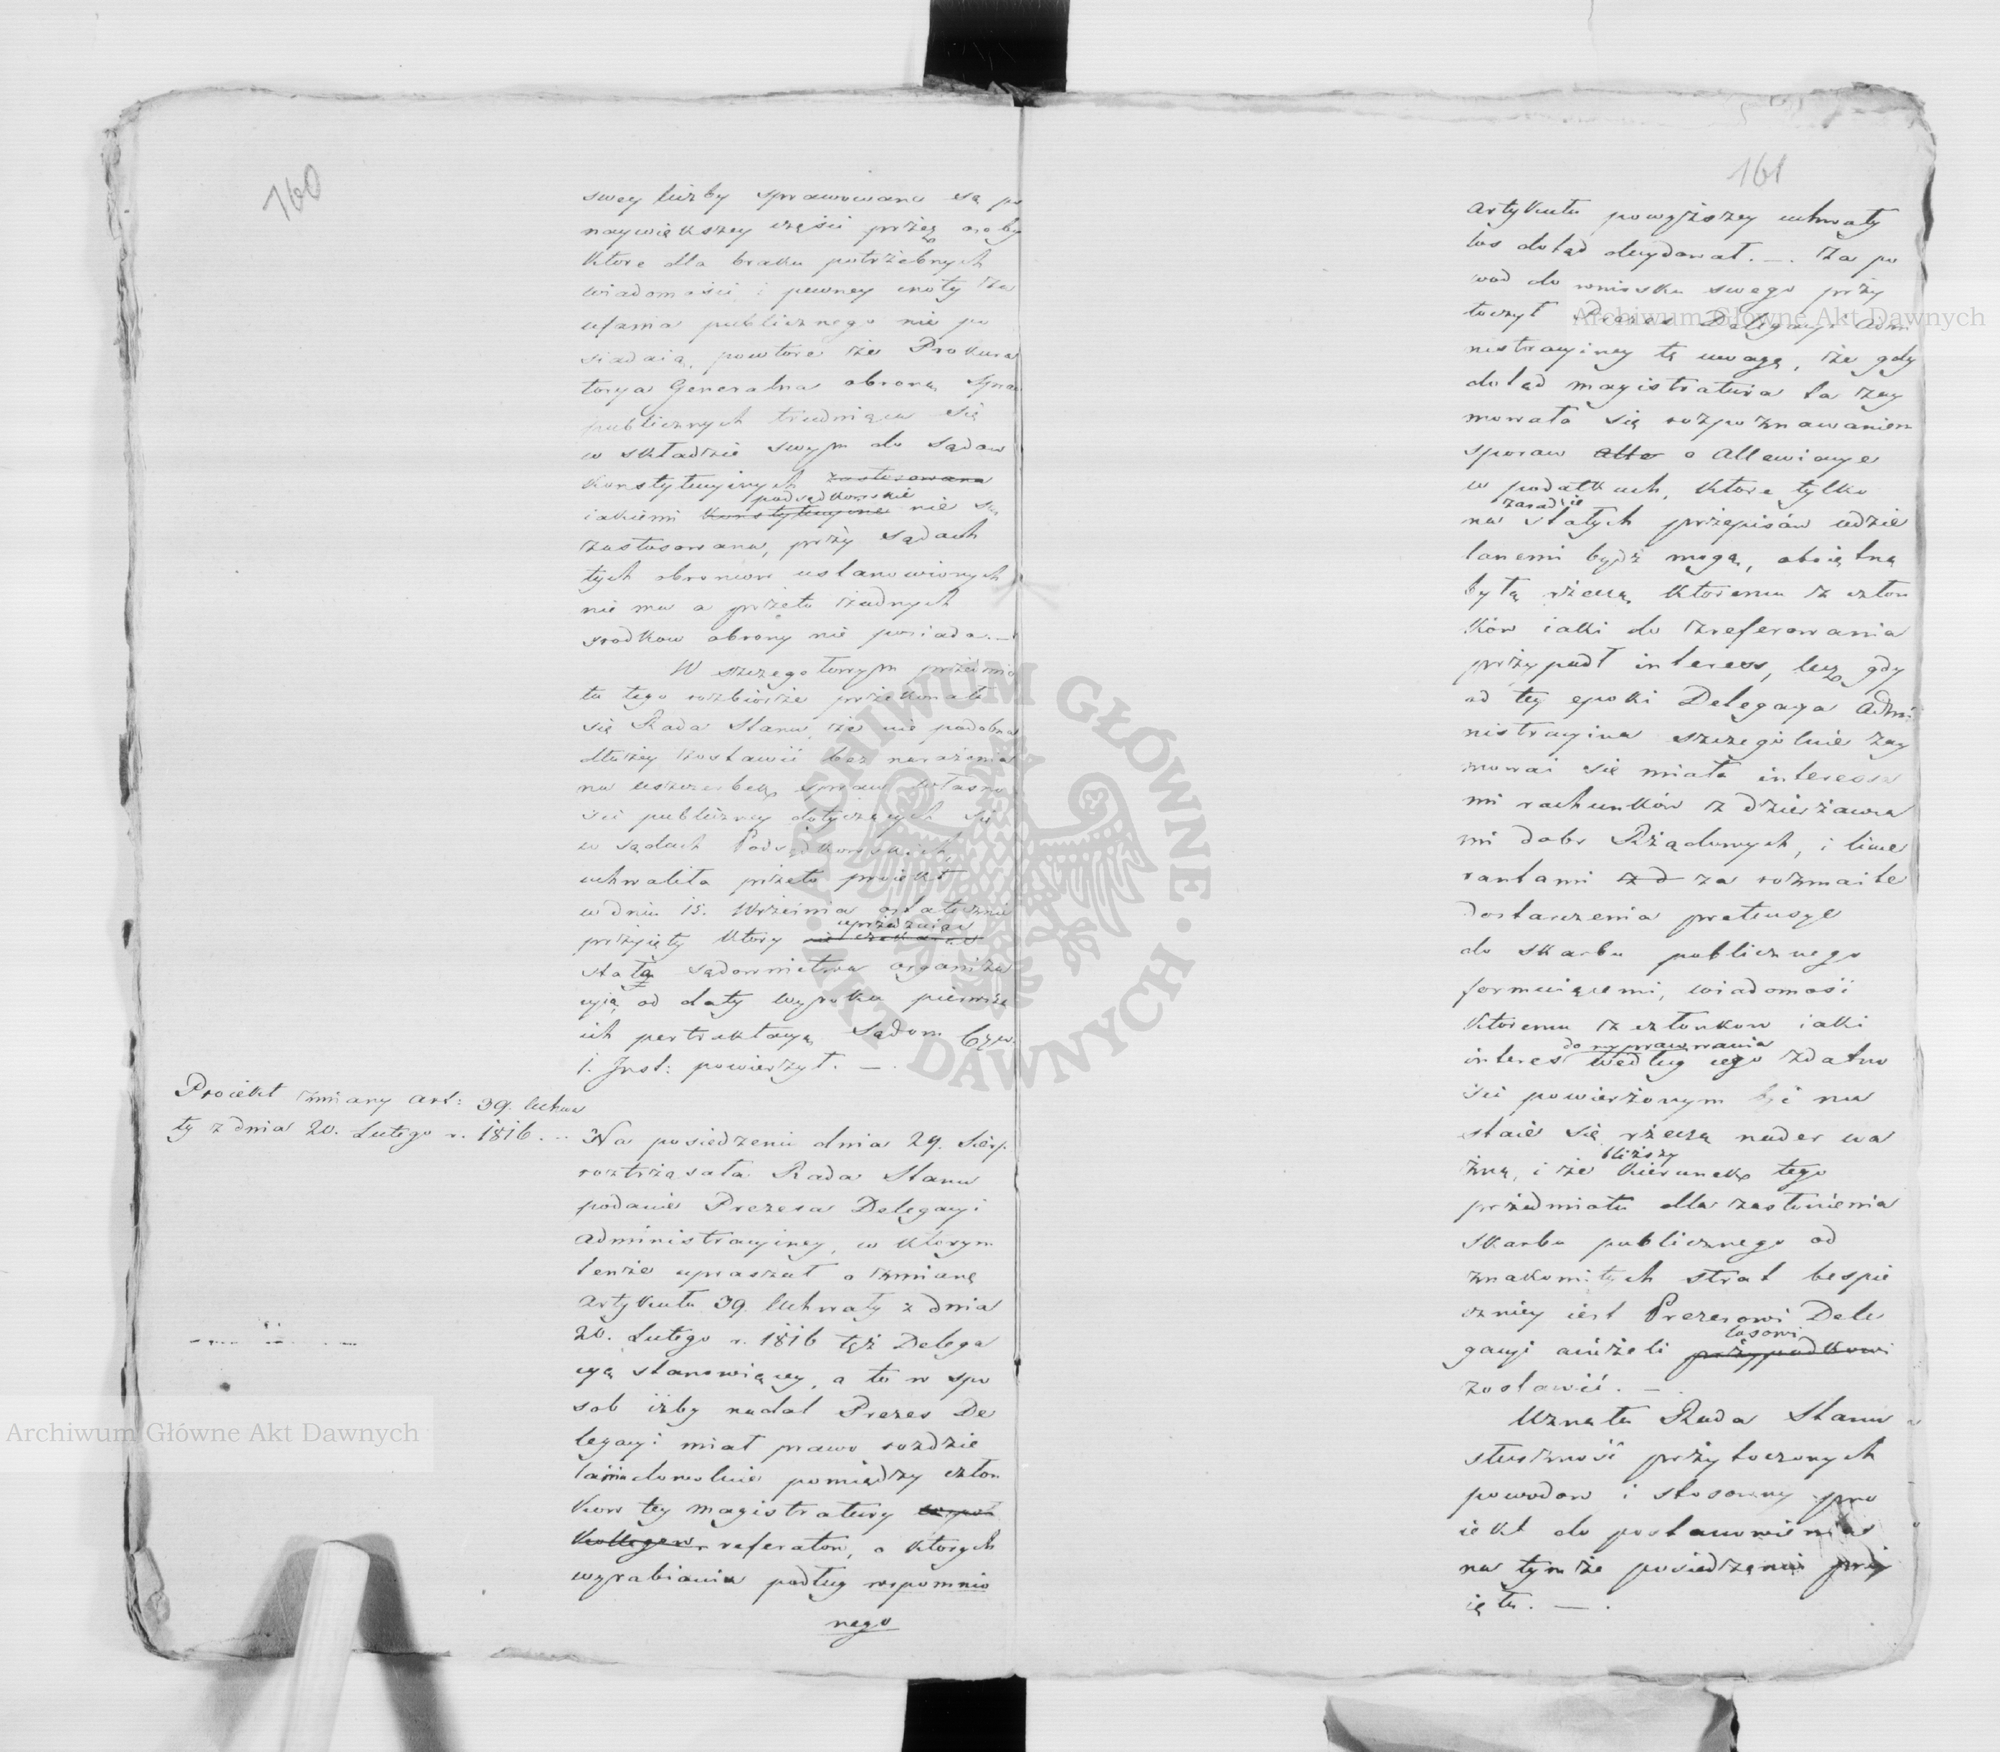 160
swey liczby sprawowane są po
naywiększey części przez osoby
które dla braku potrzebnych
wiadomości i pewney cnoty za
ufania publicznego nie po
siadaią, powtore że Prokura
torya Generalna obroną Spraw
publicznych trudniąca się
w składzie swym do Sądow
konstytucyinych zastosowana
podsędkowskie
iakiemi konstytucyine nie są
zastosowana, przy Sądach
tych obroncow ustanowionych
nie ma a przeto żadnych
srodkow obrony nie posiada. —
W szczegołowym przedmio
tu tego rozbiorze przekonała
się Rada Stanu, że nie podobna
dłużey zostawić bez narażenia
na uszczerbek spraw własno
sci publiczney dotyczących się
w sądach Podsędkowskich,
uchwaliła przeto proiekt
w dniu 15. Września ostatecznie
uprzedzaiąc
przyięty ktory nie czekaiąc
stałą sądownictwa organiza
cyią od daty wyroku pierwsze
ich pertraktacyą Sądom Cyw.
1. Inst: powierzył. —
Proiekt zmiany art: 39. Uchwa
ły z dnia 20. Lutego r. 1816. ..
Na posiedzeniu dnia 29. Sierp.
roztrząsała Rada Stanu
podanie Prezesa Delegacyi
Administracyiney, w ktorym
tenże upraszał o zmianę
Artykułu 39. Uchwały z dnia
20. Lutego r. 1816 tęż Delega
cyą stanowiącey, a to w spo
sob iżby nadal Prezes De
legacyi miał prawo rozdzie
lania dowolnie pomiędzy człon
kow tey magistratury
Kollegow referatow, o ktorych
wyrabianiu podług wspomnio
nego
161
Artykułu powyższey uchwały
los dotąd decydował. —. Za po
wod do wniosku swego przy
toczył Prezes Delegacyi Admi
nistracyiney tę uwagę, że gdy
dotąd magistratura ta zay
mowała się rozpoznawaniem
sporow albo o Allewiacye
w podatkach, które tylko
zasadzie
na stałych przepisów udzie
lanemi bydź mogą, oboiętną
byłą rzeczą któremu z człon
ków iaki do zreferowania
przypadł interess, lecz gdy
od tey epoki Delegacya Admi
nistracyina szczególnie zay
mować się miała interessa
mi rachunków z dzierżawca
mi dobr Rządowych, i liwe
rantami z d za rozmaite
dostarczenia pretensye
do skarbu publicznego
formuiącemi, wiadomość
ktoremu z członkow iaki
do wypracowania
interes według iego zdatno
sci powierzonym być ma
staie się rzeczą nader wa
bliższy
żną, i że kierunek tego
przedmiotu dla zasłonienia
Skarbu publicznego od
znakomitych strat bespie
czniey iest Prezesowi Dele
losowi
gacyi aniżeli przypadkowi
zostawić. —.
Uznała Rada Stanu
słuszność przytoczonych
powodow i stosowny pro
iekt do postanowienia
na tymże posiedzeniu przy
ięła. —.
Archiwum Główne Akt Dawnych
Archiwum Główne Akt Dawnych
ARCHIWUM GŁÓWNE · AKT DAWNYCH ·